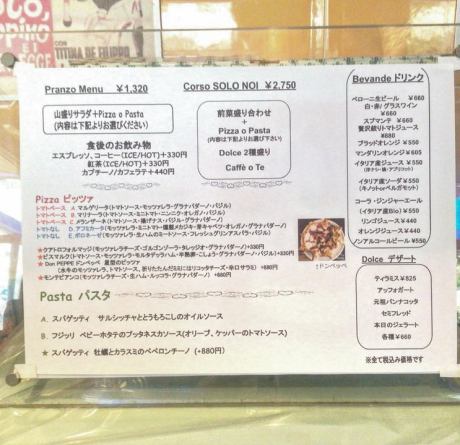 CON
TITINA DE FILIPPO
Pranzo Menu ￥1,320
山盛りサラダ+Pizza o Pasta
(内容は下記よりお選びください)
食後のお飲み物
エスプレッソ、コーヒー(ICE/HOT)+330円
紅茶(ICE/HOT)+330円
カプチーノ/カフェラテ+440円
Corso SOLO NOI ￥2,750
前菜盛り合わせ
+
Pizza o Pasta
(内容は下記よりお選び下さい)
Dolce 2種盛り
Caffè o Te
Bevande ドリンク
ペローニ生ビール ￥660
白・赤/グラスワイン
￥660
スプマンテ ￥660
贅沢絞りトマトジュース
￥880
ブラッドオレンジ ￥550
マンダリンオレンジ ￥605
イタリア産ジュース ￥550
イタリア産ソーダ ￥550
(キノットorベルガモット)
コーラ・ジンジャーエール
(イタリア産Bio) ￥550
リンゴジュース ￥440
オレンジジュース ￥440
ノンアルコールビール ￥550
Pizza ピッツァ
トマトベース A. マルゲリータ(トマトソース・モッツァレラ・グラナパダーノ・バジル)
トマトベース B. マリナーラ(トマトソース・ミニトマト・ニンニク・オレガノ・バジル)
トマトベース C. メランザーネ(トマトソース・モッツァレラ・揚げナス・バジル・グラナパダーノ)
トマトなし D.
トマトなし E.
★クアトロフォルマッジ(モッツァレラチーズ・ゴルゴンゾーラ・タレッジオ・グラナパダーノ)+330円
★ビスマルク(トマトソース・モッツァレラ・モルタデッラハム・半熟卵・こしょう・グラナパダーノ・バジル)+330円
★Don PEPPE ドンペッペ 星型のピッツァ
(水牛のモッツァレラ、トマトソース、折りたたんだミミにはリコッタチーズ・辛口サラミ) +880円
★モンテビアンコ(モッツァレラチーズ・生ハム・ルッコラ・グラナパダーノ) +880円
↑ドンペッペ
Pasta パスタ
A. スパゲッティ サルシッチャととうもろこしのオイルソース
B. フジッリ ベビーホタテのプッタネスカソース(オリーブ、ケッパーのトマトソース)
★ スパゲッティ 牡蠣とカラスミのペペロンチーノ (+880円)
Dolce デザート
ティラミス￥825
アッフォガート
元祖パンナコッタ
セミフレッド
本日のジェラート
各種￥660
※全て税込み価格です